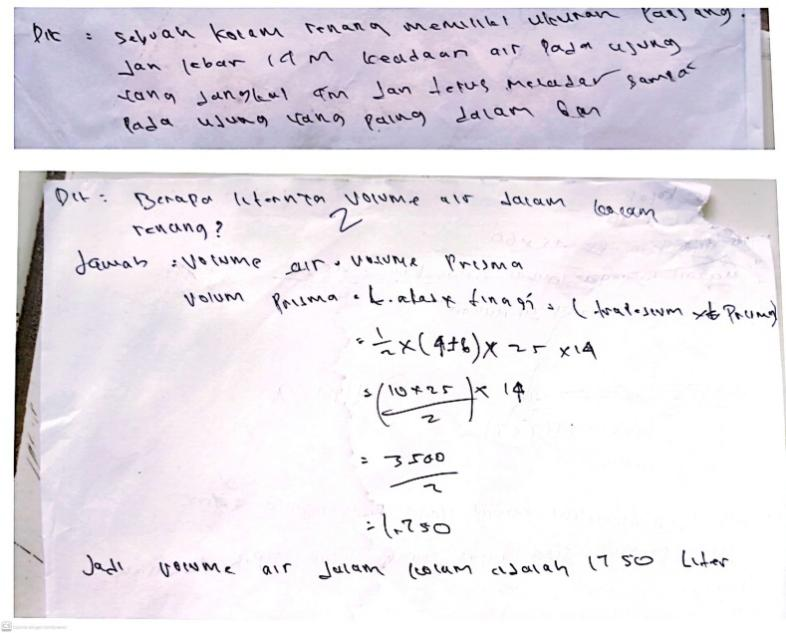 Dik : Sebuah kolam renang memiliki ukuran panjang.
dan lebar 14 M keadaan air pada ujung
yang dangkal 4m dan terus melandar sampai
pada ujung yang paling dalam 6m
Dit : Berapa liternya volume air dalam kolam
renang?
2
Jawab : Volume air = volume Prisma
Volum Prisma = L. alas x tinggi = ( trapesium x t Prisma)
= 1/2 x (4+6) x 25 x 14
= (10 x 25 / 2) x 14
= 3500 / 2
= 1.750
Jadi volume air dalam kolam adalah 1750 Liter